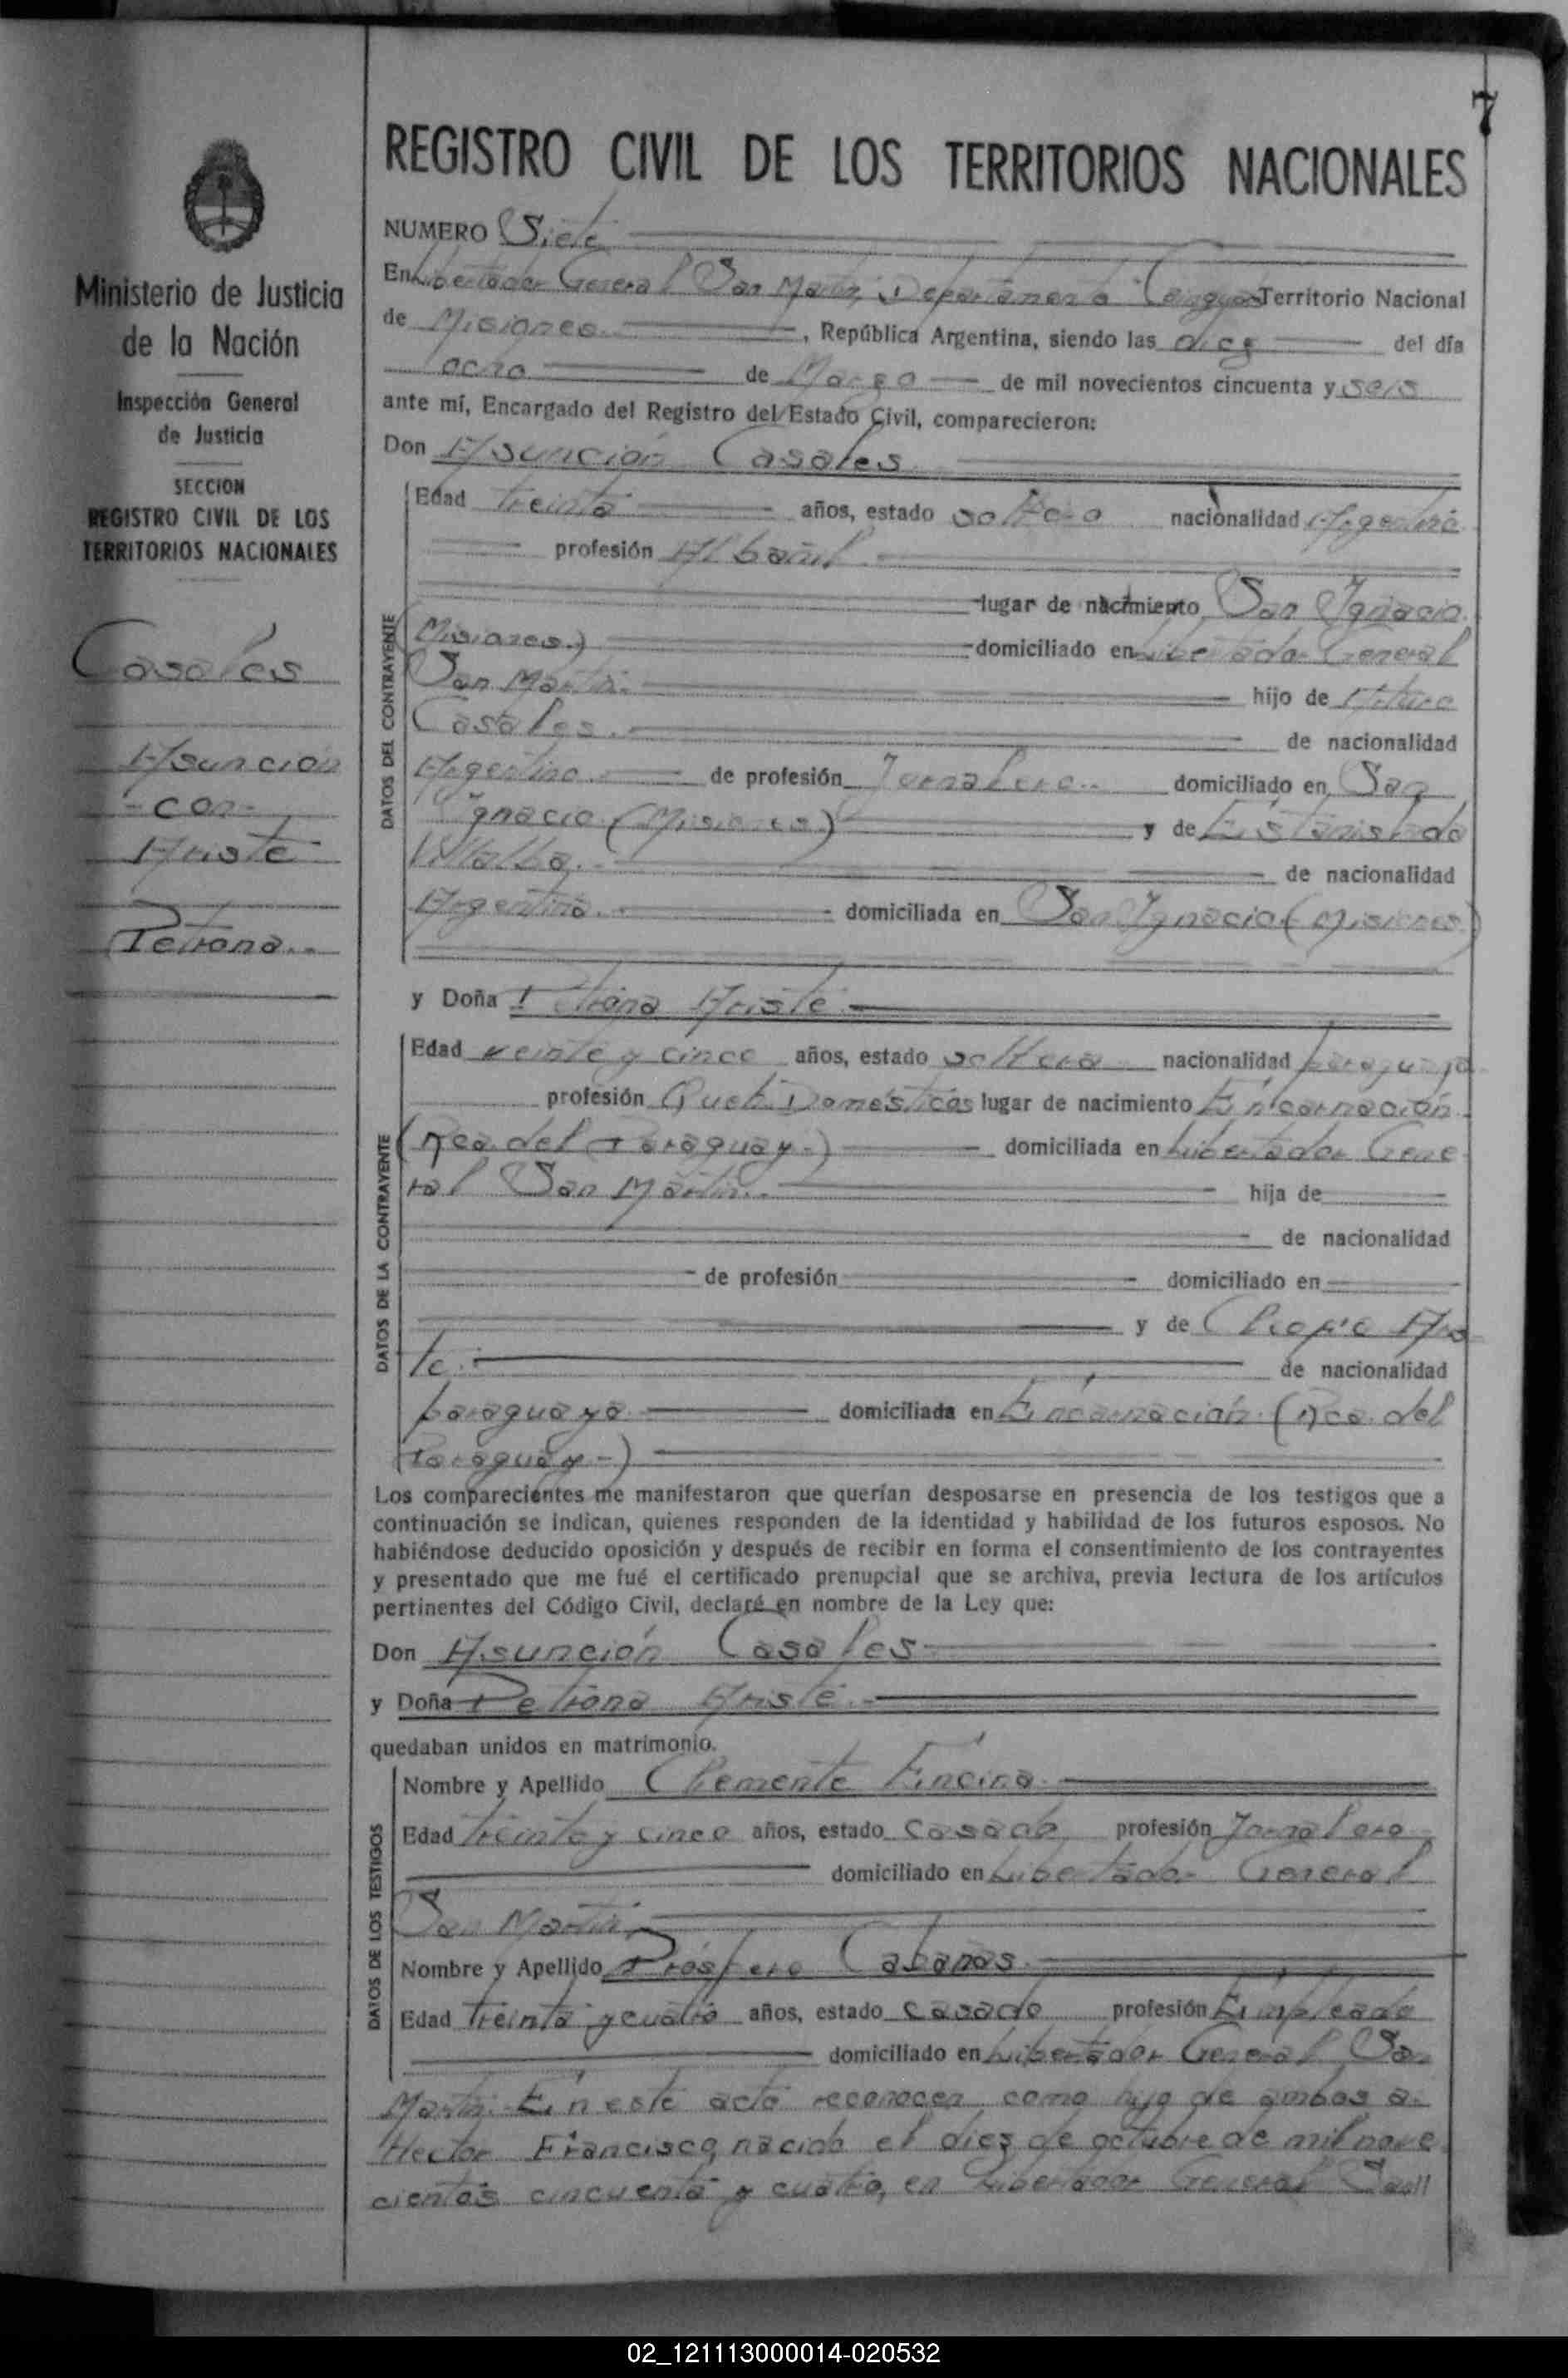 7
REGISTRO CIVIL DE LOS TERRITORIOS NACIONALES
Ministerio de Justicia
de la Nación
Inspección General
de Justicia
SECCION
REGISTRO CIVIL DE LOS
TERRITORIOS NACIONALES
Casales
Asunción
-con-
Aristé
Petrona.-
NUMERO Siete
En Libertador General San Martín, Departamento Cainguás Territorio Nacional
de Misiones , República Argentina, siendo las diez del día
ocho de Marzo de mil novecientos cincuenta y seis
ante mí, Encargado del Registro del Estado Civil, comparecieron:
Don Asunción Casales
DATOS DEL CONTRAYENTE
Edad treinta años, estado soltero nacionalidad Argentina
profesión Albañil
lugar de nacimiento San Ignacio
(Misiones.) domiciliado en Libertador General
San Martín.- hijo de Arturo
Casales.- de nacionalidad
Argentino.- de profesión Jornalero.- domiciliado en San
Ignacio (Misiones) y de Estanislada
Villalba.- de nacionalidad
Argentina.- domiciliada en San Ignacio (Misiones)
y Doña Petrona Aristé.-
DATOS DE LA CONTRAYENTE
Edad veinte y cinco años, estado soltera nacionalidad paraguaya
profesión Queh. Domésticos lugar de nacimiento Encarnación
(Rca. del Paraguay-) domiciliada en Libertador Gene
ral San Martín.- hija de
de nacionalidad
de profesión domiciliado en
y de Aris
te.- de nacionalidad
paraguaya domiciliada en Encarnación (Rca. del
Paraguay-)
Los comparecientes me manifestaron que querían desposarse en presencia de los testigos que a
continuación se indican, quienes responden de la identidad y habilidad de los futuros esposos. No
habiéndose deducido oposición y después de recibir en forma el consentimiento de los contrayentes
y presentado que me fué el certificado prenupcial que se archiva, previa lectura de los artículos
pertinentes del Código Civil, declaré en nombre de la Ley que:
Don Asunción Casales
y Doña Petrona Aristé.-
quedaban unidos en matrimonio.
DATOS DE LOS TESTIGOS
Nombre y Apellido Clemente Encina
Edad treinta y cinco años, estado casado profesión Jornalero
domiciliado en Libertador General
San Martín
Nombre y Apellido Próspero Cabañas.
Edad treinta y cuatro años, estado casado profesión Empleado
domiciliado en Libertador General San
Martín.- En este acto reconocen como hijo de ambos a-
Hector Francisco, nacido el diez de octubre de mil nove
cientos cincuenta y cuatro, en Libertador General San//
02_121113000014-020532